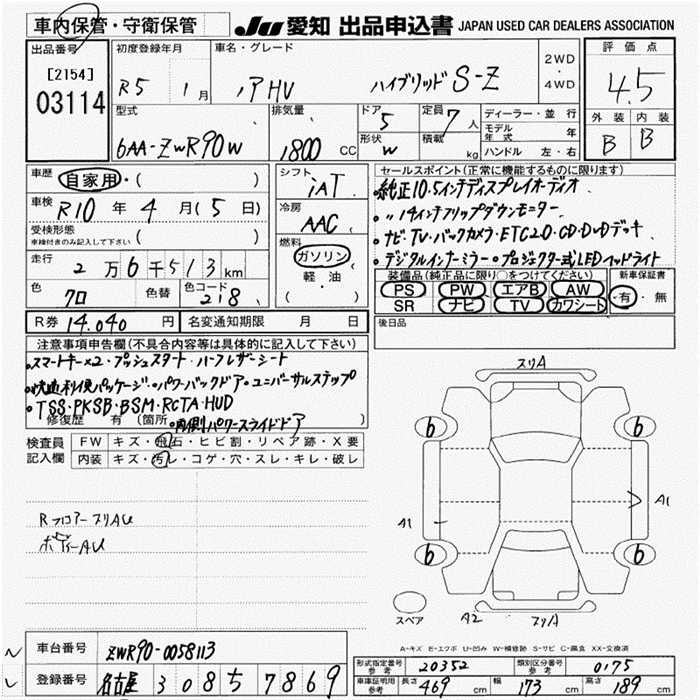 車内保管・守衛保管
JU 愛知 出品申込書 JAPAN USED CAR DEALERS ASSOCIATION
出品番号
[2154]
03114
初度登録年月
R5 1月
車名・グレード
ノアHV ハイブリッド S-Z
2WD
・
4WD
評価点
4.5
外装 内装
B B
型式
6AA-ZWR90W
排気量
1800 CC
ドア
5
形状
W
定員
7人
積載
kg
ディーラー・並行
モデル年式 年
ハンドル 左・右
車歴
自家用・( )
車検
R10年4月(5日)
受検形態
車検付きのみ記入して下さい ( )
走行
2万6千513km
色
クロ
色替
カラーコード
218
シフト
iAT
冷房
AAC
燃料
ガソリン
軽油
( )
セールスポイント(正常に機能するものに限ります)
・純正10.5インチディスプレイオーディオ
・〃14インチフリップダウンモニター
・ナビ・TV・バックカメラ・ETC2.0・CD・DVDデッキ
・デジタルインナーミラー・プロジェクター式LEDヘッドライト
装備品(純正品に限り○をつけてください)
PS PW エアB AW
SR ナビ TV カワシート
新車保証書
有・無
後日品
R券 14,040円
名変通知期限 月 日
注意事項申告欄(不具合内容等は具体的に記入して下さい)
・スマートキー×2・プッシュスタート・ハーフレザーシート
・快適利便パッケージ・パワーバックドア・ユニバーサルステップ
・TSS・PKSB・BSM・RCTA・HUD
修復歴 有(箇所 ・両側パワースライドドア
検査員記入欄
FW キズ・飛石・ヒビ割・リペア跡・X要
内装 キズ・汚レ・コゲ・穴・スレ・キレ・破レ
Rフロアースリ AU
ボディーAU
スリA
6 6
A1 A1
6 6
スペア
A2 スリA
A-キズ E-エクボ U-凹み W-補修跡 S-サビ C-腐食 XX-交換済
車台番号
ZWR90-0058113
登録番号
名古屋 308 57869
形式指定番号
参考
20352
類別区分番号
参考
0175
車庫証明用
参考
長さ 469cm 幅 173cm 高さ 189cm